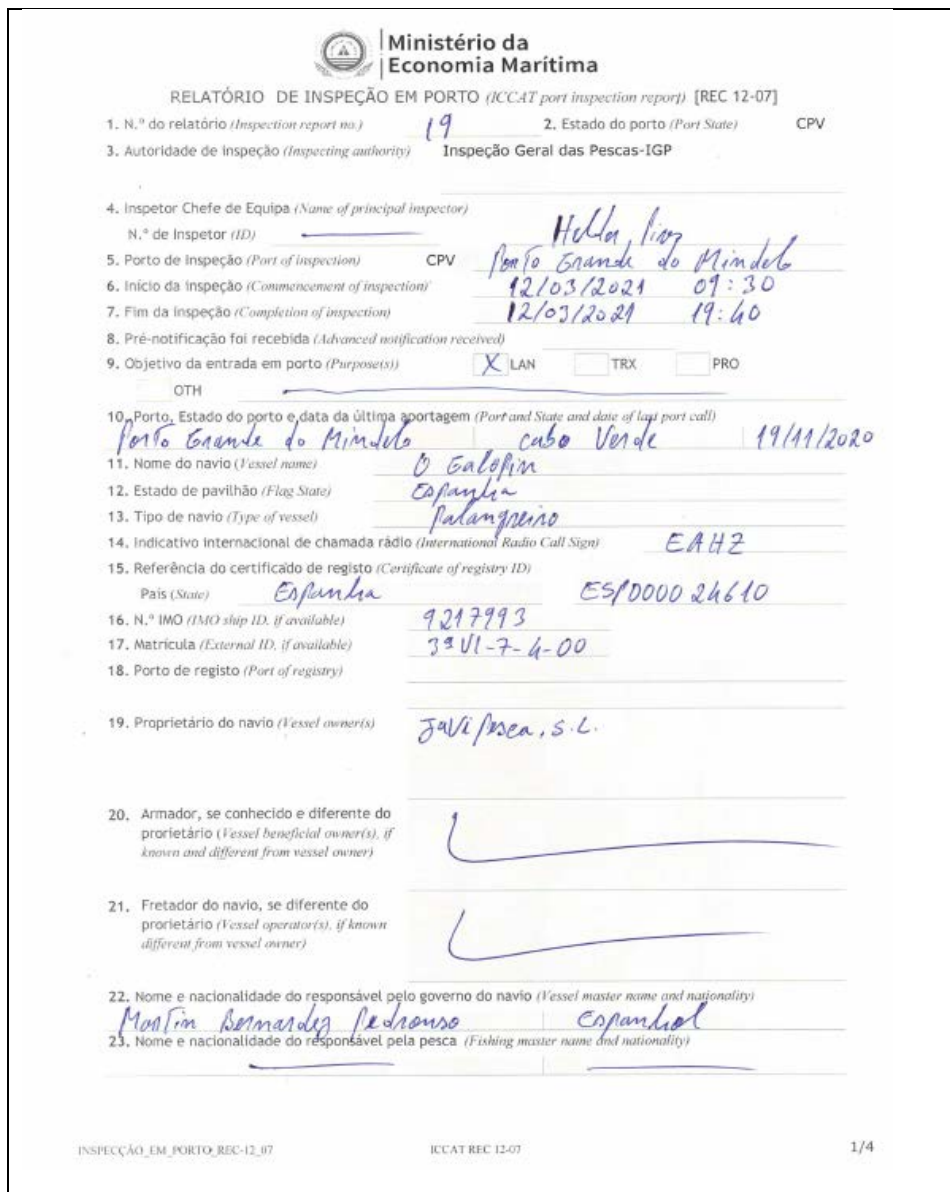 Ministério da
Economia Marítima
RELATÓRIO DE INSPEÇÃO EM PORTO (ICCAT port inspection report) [REC 12-07]
1. N.º do relatório (Inspection report no.) 19 2. Estado do porto (Port State) CPV
3. Autoridade de inspeção (Inspecting authority) Inspeção Geral das Pescas-IGP
4. Inspetor Chefe de Equipa (Name of principal inspector)
N.º de Inspetor (ID)
5. Porto de inspeção (Port of inspection) CPV Porto Grande do Mindelo
6. Início da inspeção (Commencement of inspection) 12/03/2021 09:30
7. Fim da inspeção (Completion of inspection) 12/03/2021 19:40
8. Pré-notificação foi recebida (Advanced notification received)
9. Objetivo da entrada em porto (Purpose(s)) X LAN TRX PRO
OTH
10. Porto, Estado do porto e data da última aportagem (Port and State and date of last port call)
Porto Grande do Mindelo cabo Verde 19/11/2020
11. Nome do navio (Vessel name) O Galopin
12. Estado de pavilhão (Flag State) Espanha
13. Tipo de navio (Type of vessel) Palangreiro
14. Indicativo internacional de chamada rádio (International Radio Call Sign) EAHZ
15. Referência do certificado de registo (Certificate of registry ID)
País (State) Espanha ESP000024610
16. N.º IMO (IMO ship ID, if available) 9217993
17. Matrícula (External ID, if available) 3ªVI-7-4-00
18. Porto de registo (Port of registry)
19. Proprietário do navio (Vessel owner(s)) JaviPesca, S.L.
20. Armador, se conhecido e diferente do
prorietário (Vessel beneficial owner(s), if
known and different from vessel owner)
21. Fretador do navio, se diferente do
prorietário (Vessel operator(s), if known
different from vessel owner)
22. Nome e nacionalidade do responsável pelo governo do navio (Vessel master name and nationality)
Martin Bernardez Pedrouso Espanhol
23. Nome e nacionalidade do responsável pela pesca (Fishing master name and nationality)
INSPECÇÃO_EM_PORTO_REC-12_07 ICCAT REC 12-07 1/4